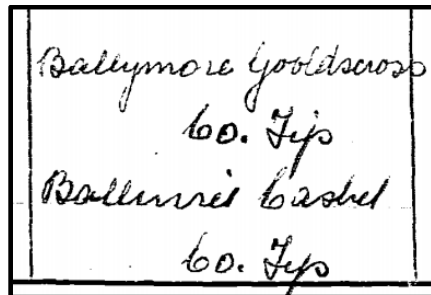 Ballymore Gooldscross
Co. Tip
Cashel
Co. Tip